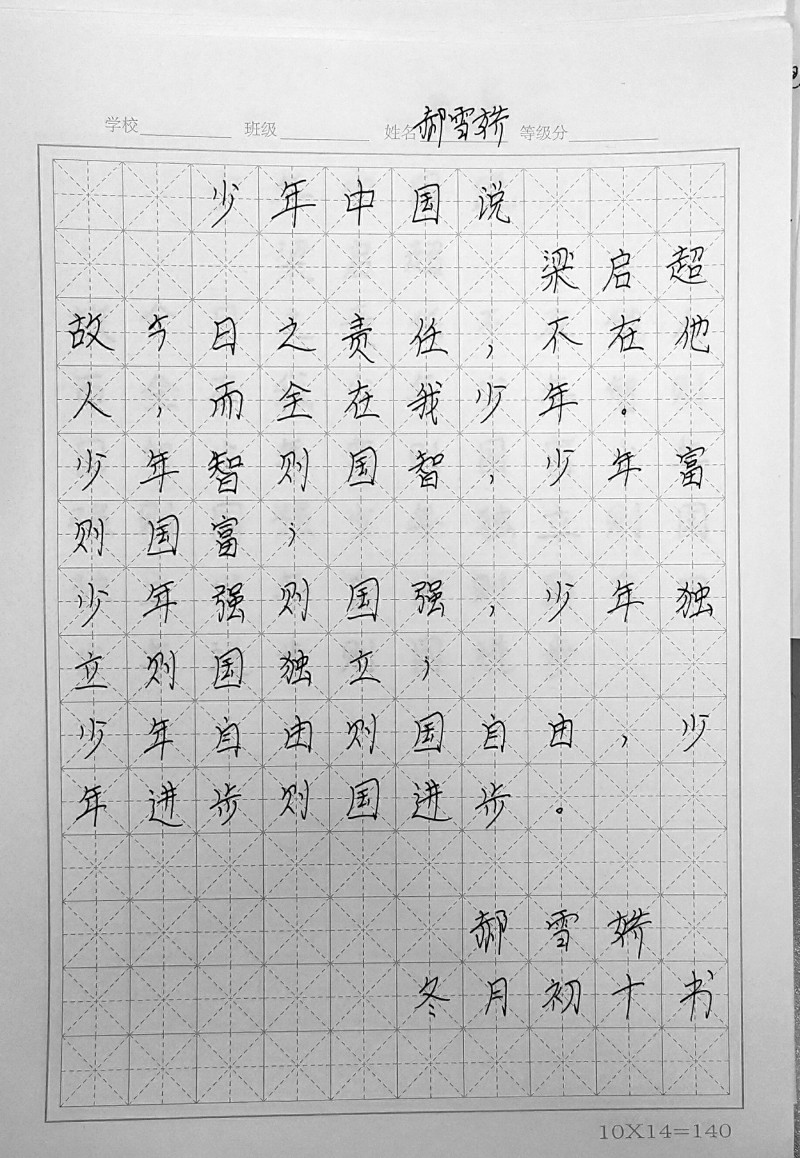 学校 班级 姓名 郝雪娇 等级分
少年中国说
梁启超
故今日之责任,不在他
人,而全在我少年。
少年智则国智,少年富
则国富;
少年强则国强,少年独
立则国独立;
少年自由则国自由,少
年进步则国进步。
郝雪娇
冬月初十书
10X14=140